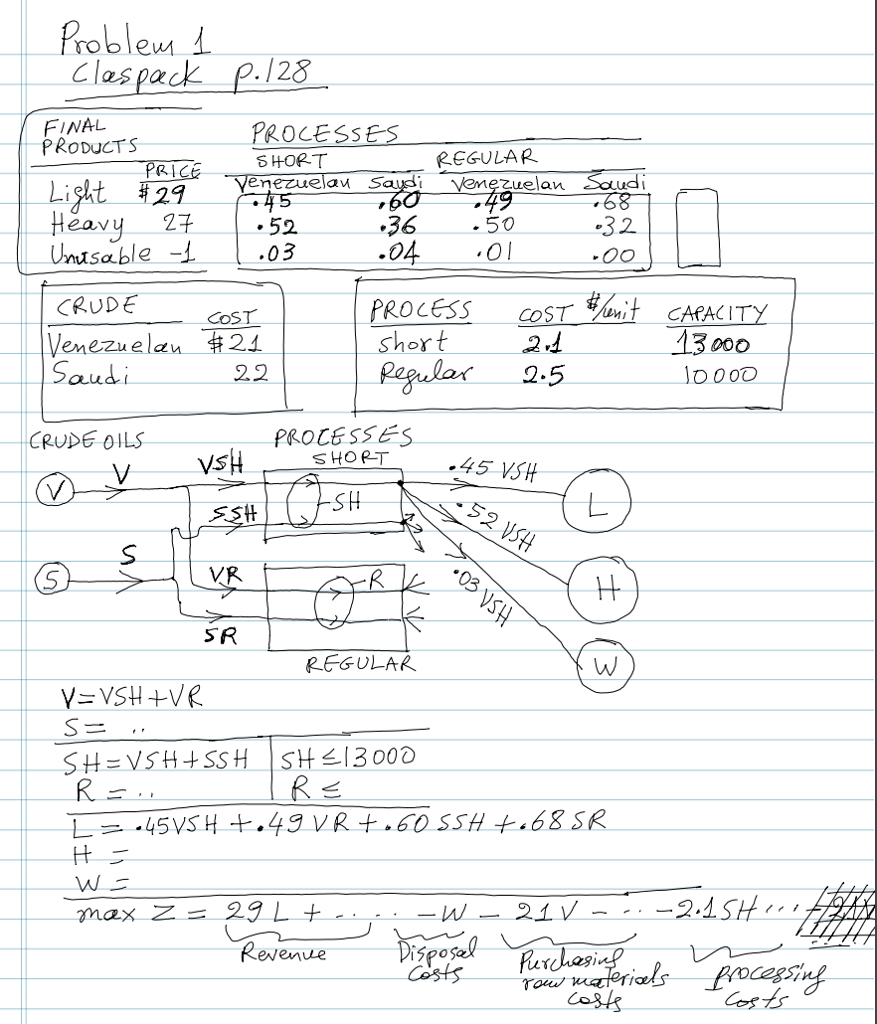 Problem 1
Claspack p.128
FINAL PRODUCTS
PROCESSES
PRICE SHORT REGULAR
Venezuelan Saudi Venezuelan Saudi
Light $29 .45 .60 .49 .68
Heavy 27 .52 .36 .50 .32
Unusable -1 .03 .04 .01 .00
CRUDE COST
Venezuelan $21
Saudi 22
PROCESS COST $/unit CAPACITY
short 2.1 13000
Regular 2.5 10000
CRUDE OILS PROCESSES
SHORT
V V VSH SH .45 VSH L
SSH .52 VSH
S S VR R .03 VSH H
SR W
REGULAR
V=VSH+VR
S= ..
SH=VSH+SSH SH≤13000
R = .. R ≤
L = .45VSH +.49 VR +.60 SSH +.68 SR
H =
W =
max Z = 29 L + ..... -W - 21V - ... -2.1SH ...
Revenue Disposal costs Purchasing raw materials costs processing costs